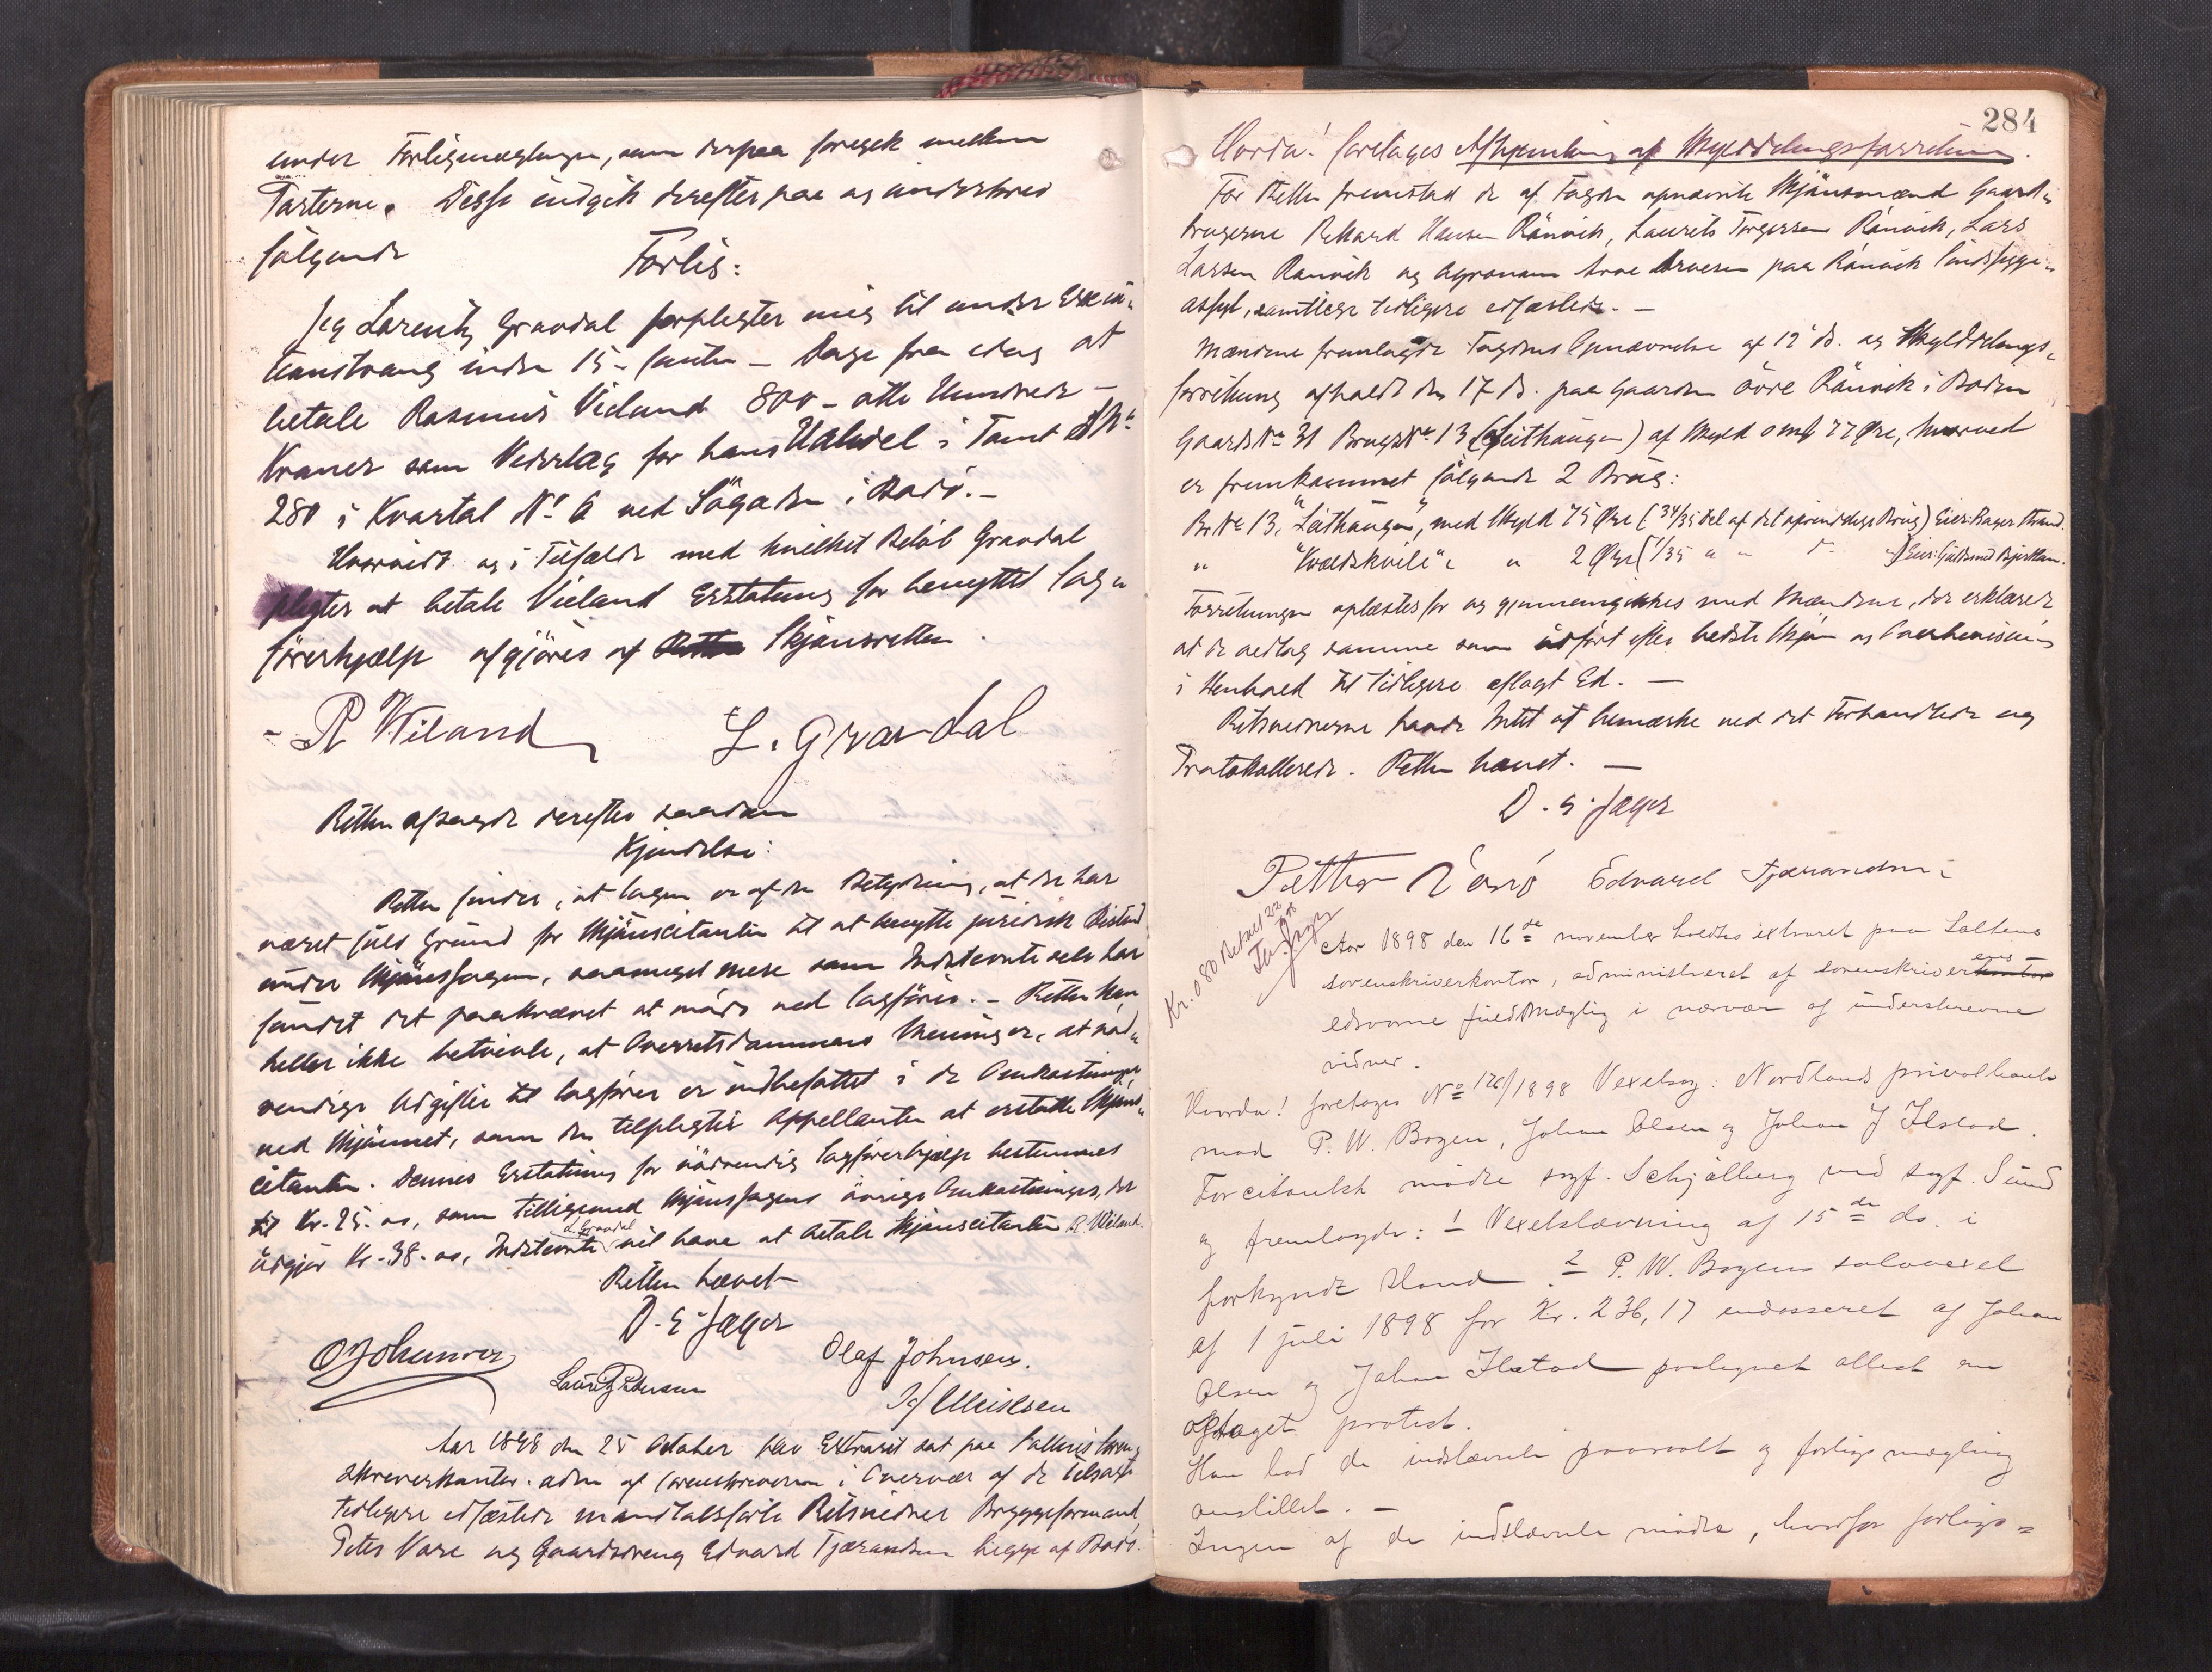 under Forligsmæglingen, som derpaa foregik mellem
Parterne. Disse indgik derefter paa og underskrev
følgende
Forlig:
Jeg Lorentz Gravdal forpligter mig til under Exeku-
tionstvang inden 15 - femten - Dage fra idag at
betale Rasmus Vieland 800 - otte Hundrede -
Kroner som Vederlag for hans Halvdel i Tomt No
280 i Kvartal No 6 ved Søgaden i Bodø. -
Hvorvidt og i Tilfælde med hvilket Beløb Gravdal
pligter at betale Vieland Erstatning for benyttet Sag-
førerhjælp afgjøres af Retten Skjønsretten.
R Wiland L. Gravdal
Retten afsagde derefter saadan
Kjendelse:
Retten finder, at Sagen er af den Betydning, at der har
været fuld Grund for Skjønscitanten til at benytte juridisk Bistand
under Skjønssagen, saameget mere som Indstevnte selv har
fundet det paakrævet at møde ved Sagfører. - Retten kan
heller ikke betvivle, at Overretsdommens Mening er, at nød-
vendige Udgifter til Sagfører er indbefattet i de Omkostninger
ved Skjønnet, som den tilpligter Appellanten at erstatte Skjøns-
citanten. Dennes Erstatning for nødvendig Sagførerhjælp bestemmes
til Kr. 25.00, som tilligemed Skjønssagens øvrige Omkostninger, der
L. Gravdal
udgjør Kr. 38.00, Indstevnte vil have at betale Skjønscitanten R. Wiland.
Retten hævet
D. E. Jæger
O Johansen Olaf Johnsen.
Lauritz Pedersen
Aar 1898 den 25 October blev Extraret sat paa Saltens Soren-
skriverkontor adm af Sorenskriveren i Overvær af de tilsagte
tidligere edfæstede mandtalsførte Retsvidner Bryggeformand
Peter Vare og Gaardsdreng Edvard Tjærandsen begge af Bodø.
284
Hvorda! foretages Afhjemling af Skylddelingsforretning.
For Retten fremstod de af Fogden opnævnte Skjønsmænd Gaard-
brugerne Rikard Hansen Rønvik, Laurits Torgersen Rønvik, Lars
Larsen Rønvik og Agronom Arne Arnesen paa Rønvik Sindssyge-
asyl, samtlige tidligere edfæstede. -
Mændene fremlagde Fogdens Opnævnelse af 12 ds. og Skylddelings-
forretning afholdt den 17 ds. paa Gaarden øvre Rønvik i Bodin
Gaards No 31 Brugs No 13 (Leithaugen) af Skyld 0 mk 77 Øre, hvorved
er fremkommet følgende 2 Brug:
Br. No 13, "Leithaugen", med Skyld 75 Øre (34/35 Del af det oprindelige Brug) Eier: Bager Strand.
" "Kvældskvile" " 2 Øre (1/35 " " d- ") Eier: Guldsmed Bjerkan.
Forretningen oplæstes for og gjennemgikkes med Mændene, der erklærede
at de vedtog samme som udført efter bedste Skjøn og Overbevisning
i Henhold til tidligere aflagt Ed. -
Retsvidnerne havde Intet at bemærke ved det Forhandlede og
Protokollerede. Retten hævet. -
D. E. Jæger
Petter Varø Edvard Tjærandsen
Kr. 0 80 Betalt 23
Jæger
Aar 1898 den 16de november holdtes extraret paa Saltens
sorenskriverkontor, administreret af sorenskriverkontor ens
edsvorne fuldmægtig i nærvær af underskrevne
vidner.
Hvorda! foretages No 126/1898 Vexelsag: Nordlands privatbank
mod P. W. Bogen, Johan Olsen og Johan J Ilstad.
For citantsk mødte sagf. Schjølberg ved sagf. Sund
og fremlagde: 1 Vexelstævning af 15de ds. i
forkyndt stand 2 P. W. Bogens solavexel
af 1 juli 1898 for Kr. 236,17 endosseret af Johan
Olsen og Johan Ilstad paategnet attest om
optaget protest.
Han lod de indstævnte paaraabt og forligs mægling
anstillet. -
Ingen af de indstævnte mødte, hvorfor forligs=